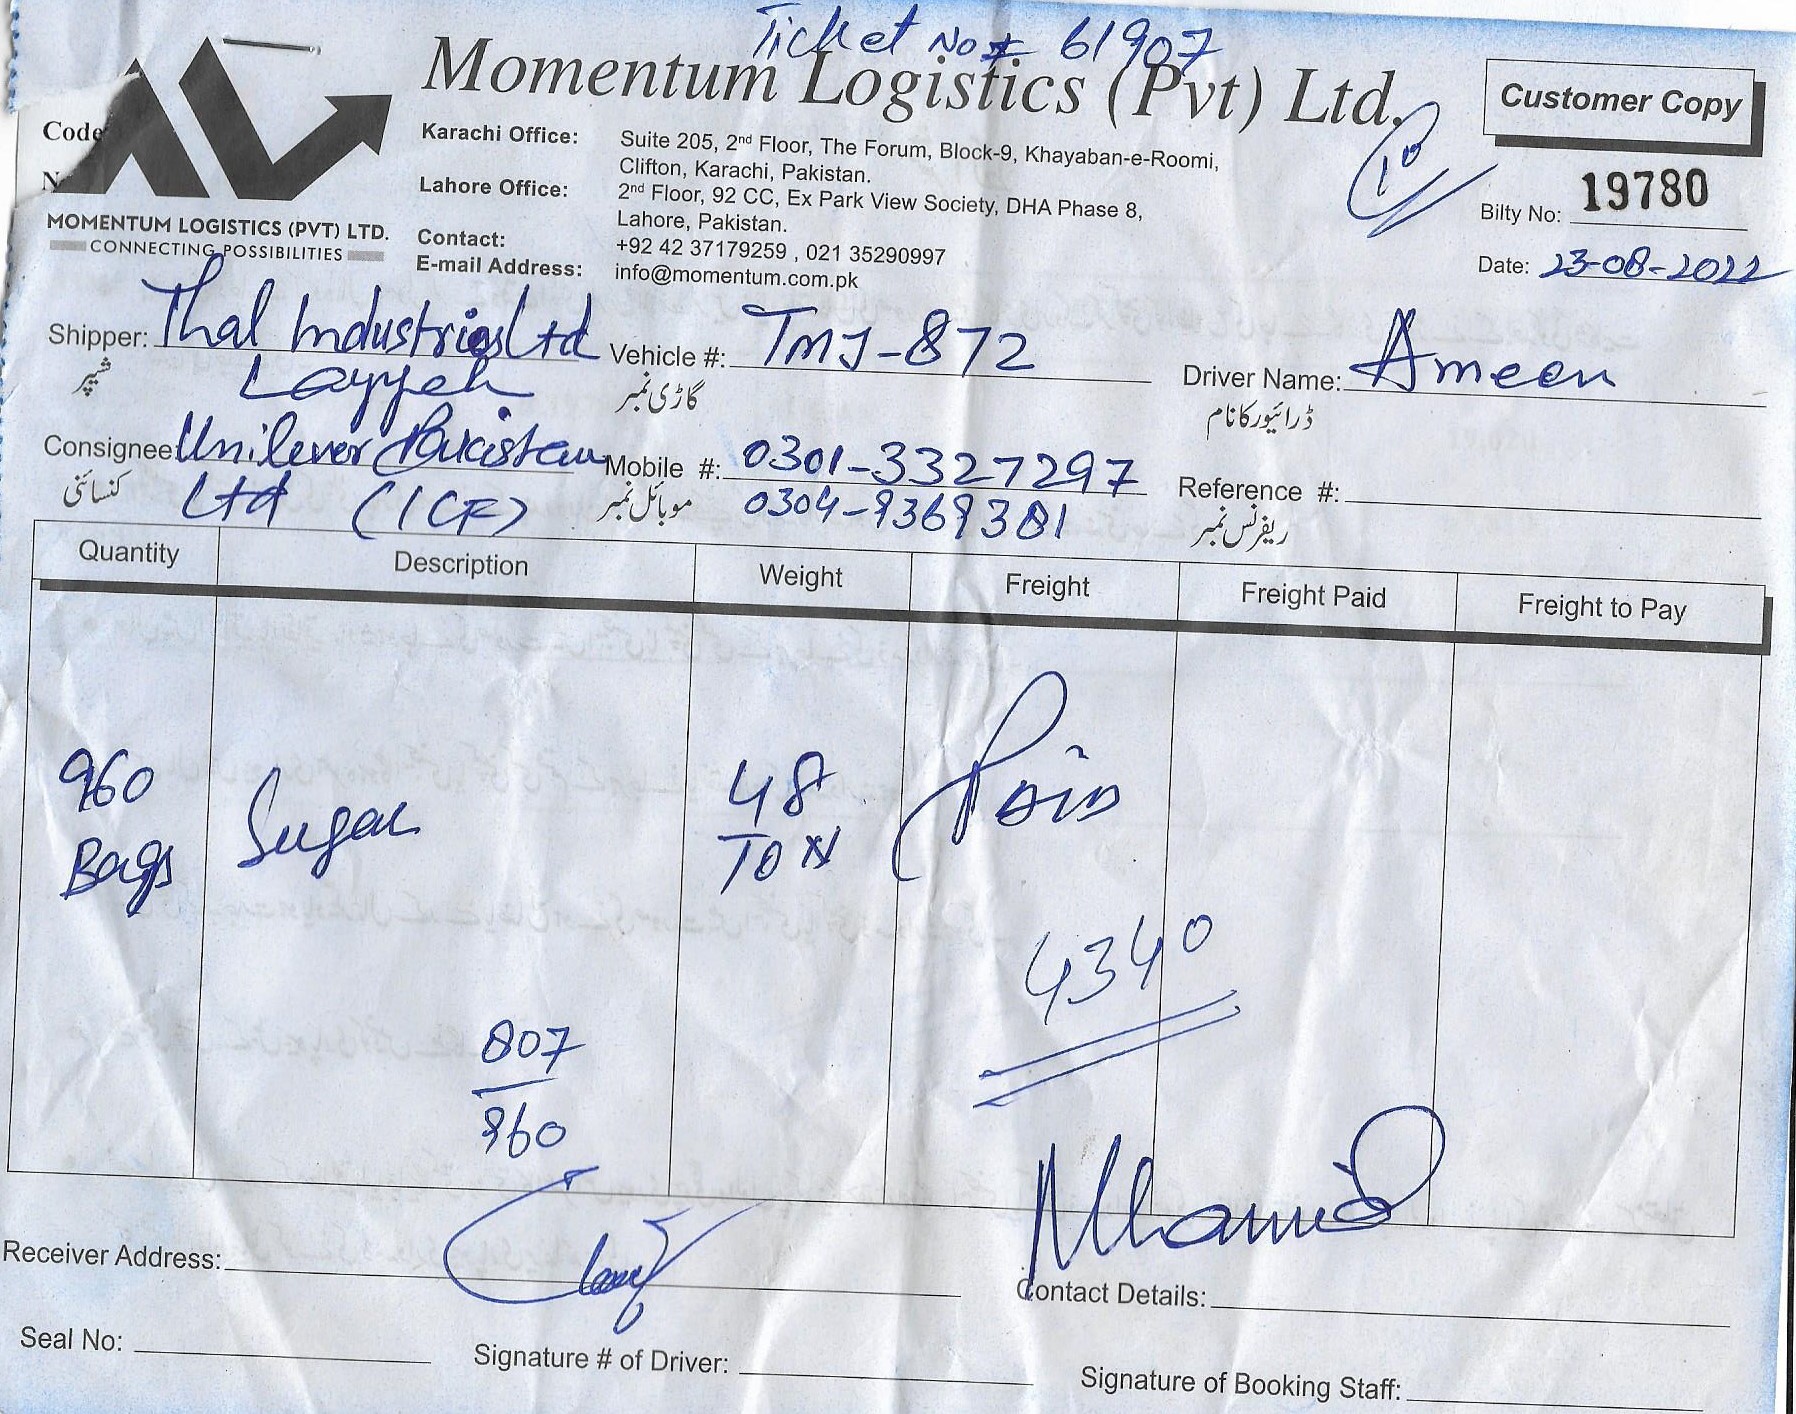 Ticket No # 61907
Momentum Logistics (Pvt) Ltd.
Customer Copy
Code
N
MOMENTUM LOGISTICS (PVT) LTD.
CONNECTING POSSIBILITIES
Karachi Office: Suite 205, 2nd Floor, The Forum, Block-9, Khayaban-e-Roomi,
Clifton, Karachi, Pakistan.
Lahore Office: 2nd Floor, 92 CC, Ex Park View Society, DHA Phase 8,
Lahore, Pakistan.
Contact: +92 42 37179259 , 021 35290997
E-mail Address: info@momentum.com.pk
Bilty No: 19780
Date: 23-08-2022
Shipper: Thal Industries Ltd Vehicle #: TMJ-872 Driver Name: Ameen
شپر Layyah گاڑی نمبر ڈرائیور کا نام
Consignee Unilever Pakistan Mobile #: 0301-3327297 Reference #:
کنسائنی Ltd (ICF) موبائل نمبر 0304-9369381 ریفرنس نمبر
Quantity Description Weight Freight Freight Paid Freight to Pay
960 Sugar 48 Paid
Bags TON
4340
807
960
Receiver Address: Contact Details:
Seal No: Signature # of Driver: Signature of Booking Staff: